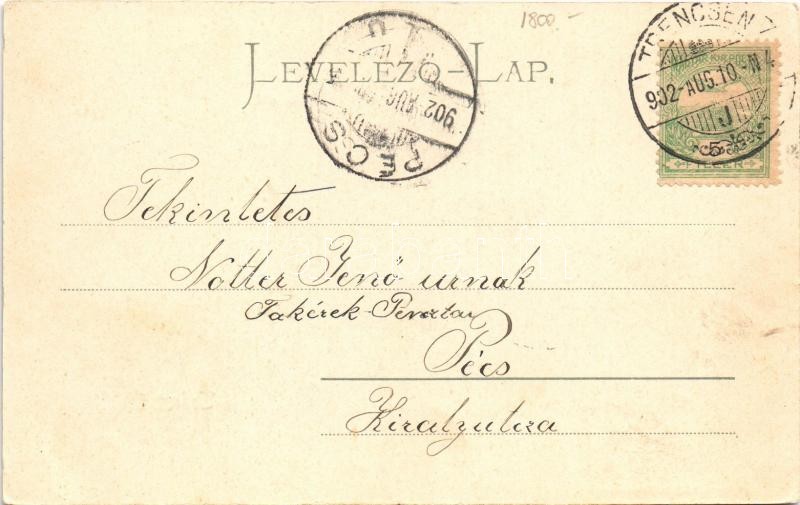 1800.-
LEVELEZŐ-LAP.
PÉCS
902 AUG
TRENCSÉN
902-AUG.10.-N4
J
5
FILLÉR
Tekintetes
Notter Jenő urnak
Takérek Penztar
Pécs
Kiralyutza